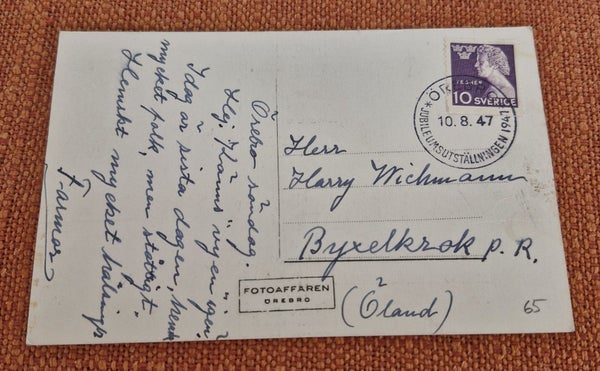 Örebro söndag.
Hej, känns vyen igen?
I dag är sista dagen,
mycket folk, men ståtligt
Hemskt mycket
Farmor
10 SVERIGE
ÖREBRO
10.8.47
*JUBILEUMSUTSTÄLLNINGEN 1947
Herr
Harry Wichmann
Byxelkrok p. R.
(Öland)
FOTOAFFÄREN
ÖREBRO
65